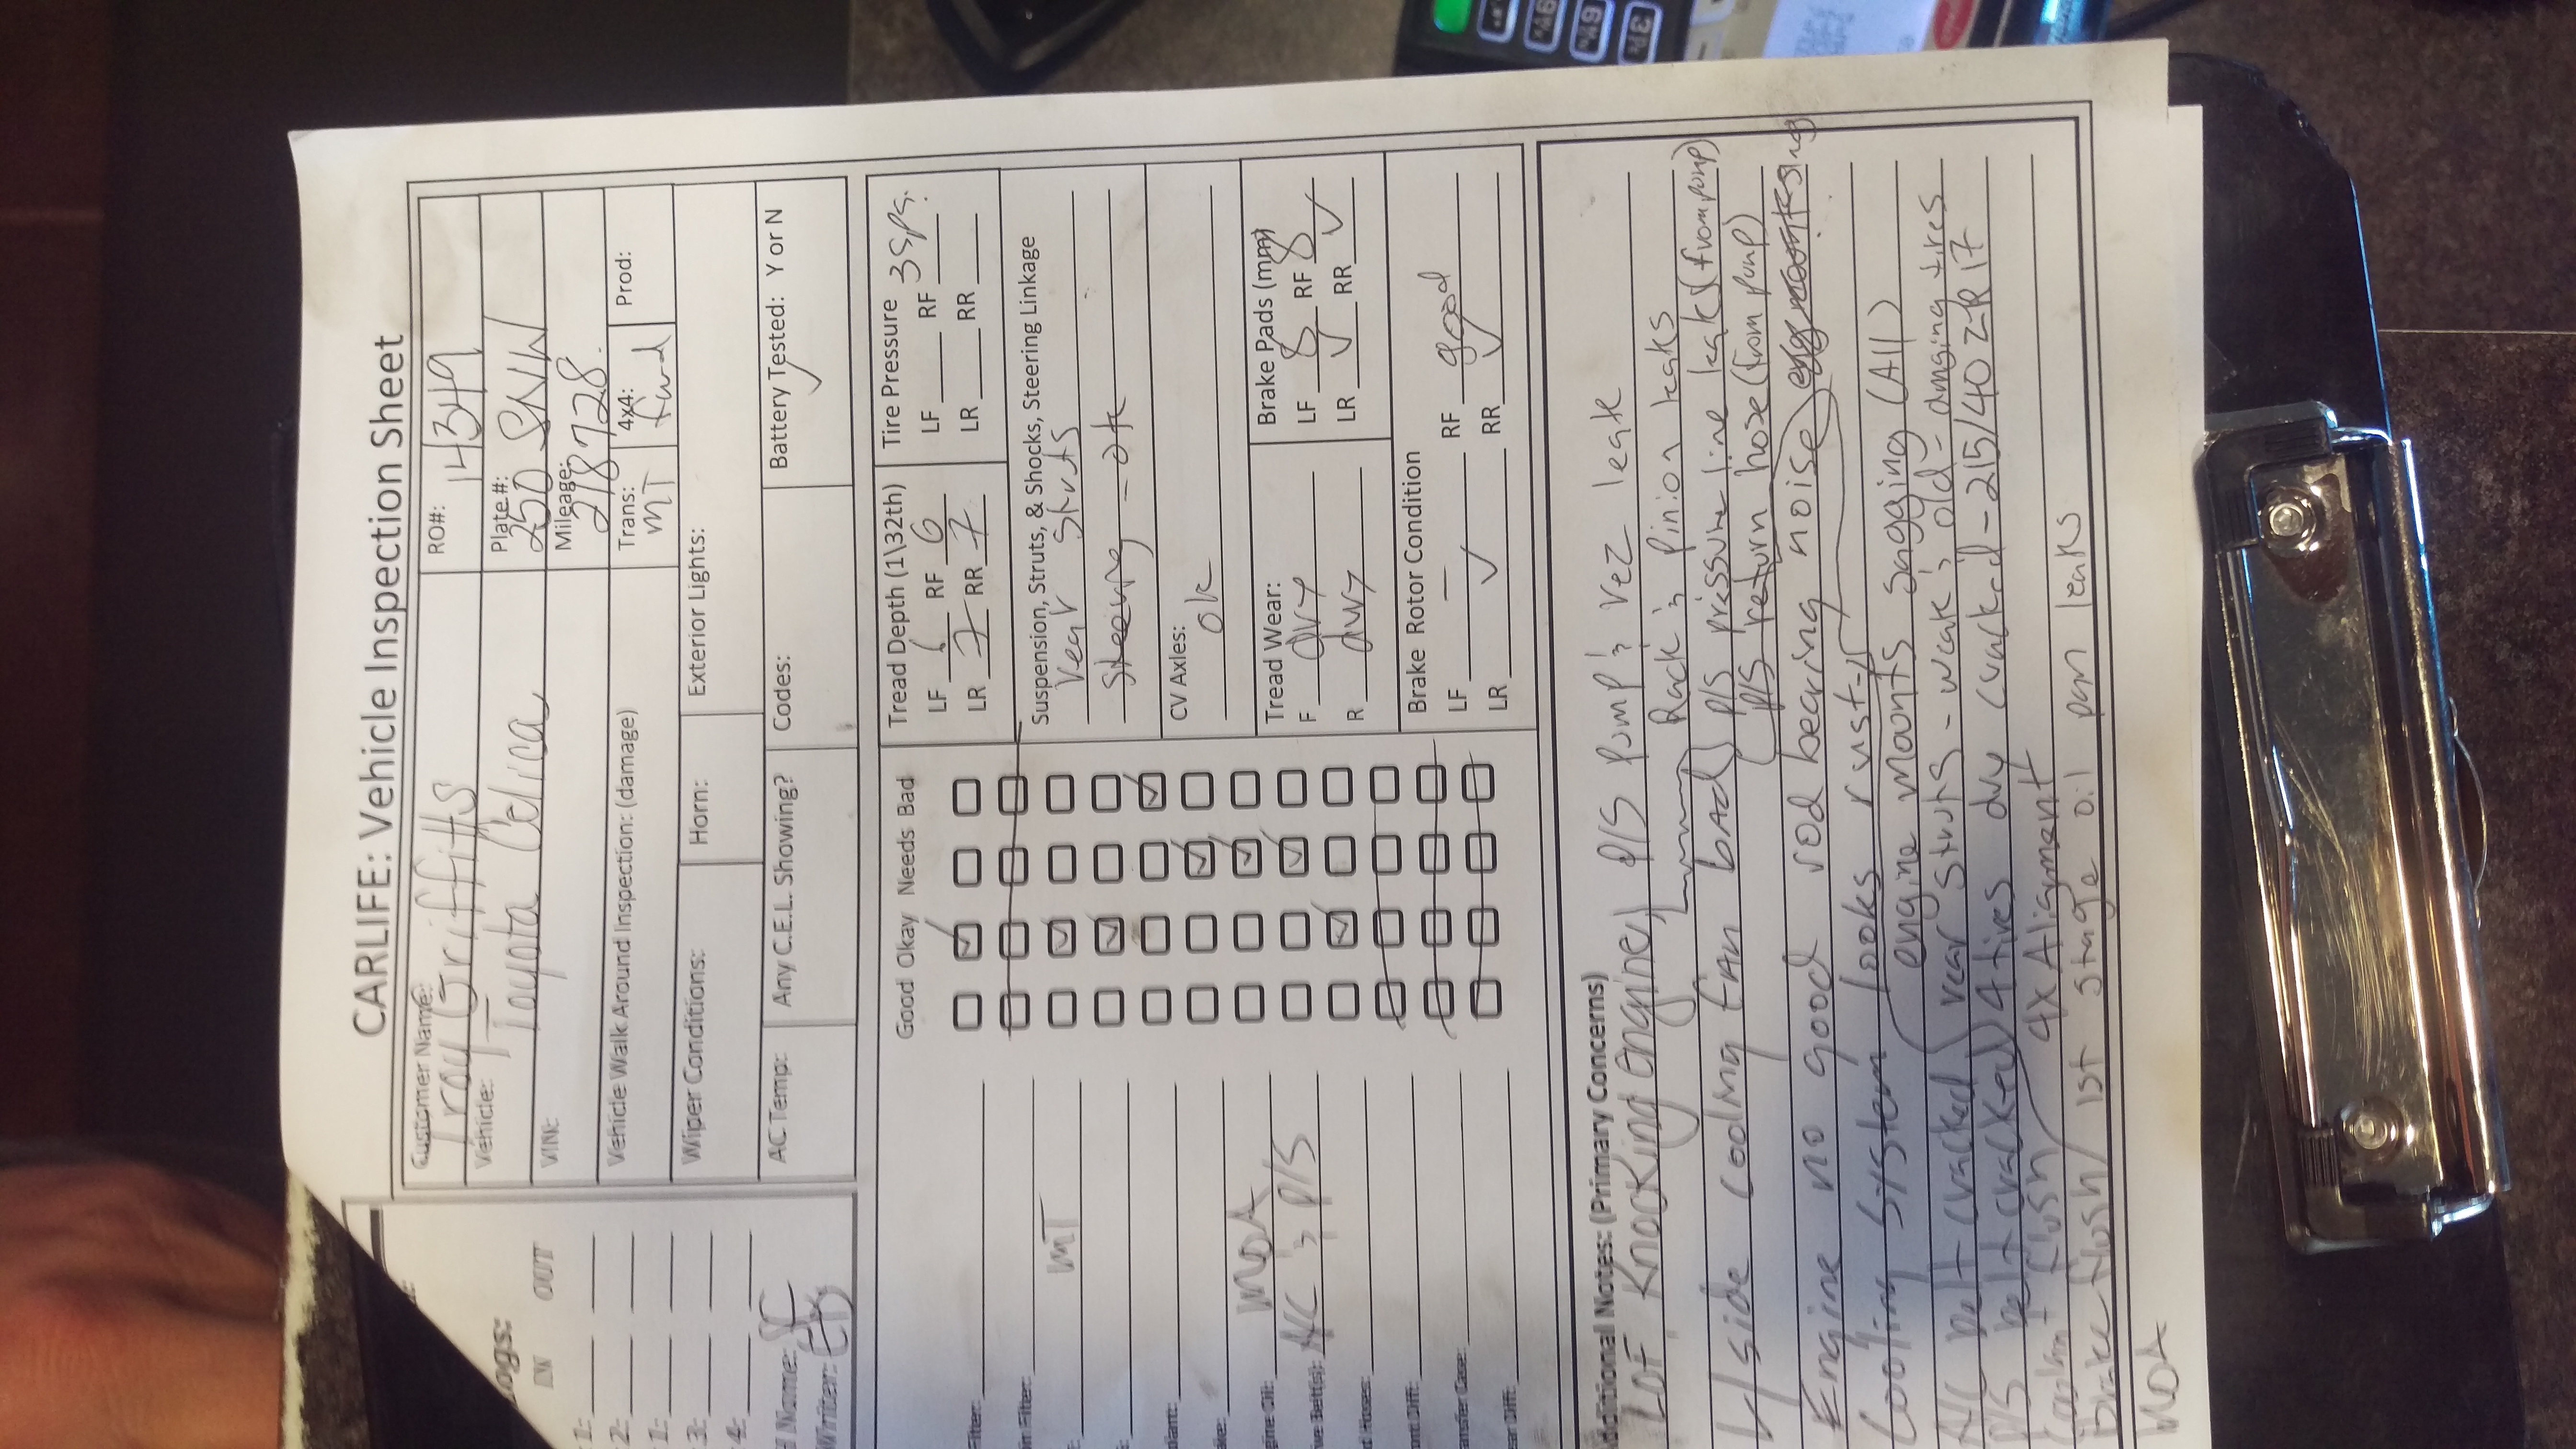 CARLIFE: Vehicle Inspection Sheet
Customer Name: Tray Griffitts
RO#: 14349
Vehicle: Toyota Celica
Plate#: 250 SNW
VIN#:
Mileage: 218728
Vehicle Walk Around Inspection: (damage)
Trans: MT
4x4: fwd
Prod:
Wiper Conditions:
Horn:
Exterior Lights:
AC Temp:
Any C.E.L. Showing?
Codes:
Battery Tested: Y or N
IN OUT
1:
2:
1:
3:
4:
Name: SC
Writer:
Good Okay Needs Bad
Filter:
in Filter:
MT
gine Oil: MOA
ive Belt(s): A/C & P/S
t Hoses:
nt Diff:
ansfer Case:
ear Diff:
Tread Depth (1\32th)
LF 6 RF 6
LR 7 RR 7
Tire Pressure 35psi
LF RF
LR RR
Suspension, Struts, & Shocks, Steering Linkage
rear struts
Steering - ok
CV Axles:
ok
Tread Wear:
F dry
R dry
Brake Pads (mm)
LF 8 RF 8
LR RR
Brake Rotor Condition
LF RF good
LR RR
dditional Notes: (Primary Concerns)
LOF Knocking Engine, P/S pump & rez leak
Rack & Pinion leaks
L/side cooling fan bad P/S pressure line leaks (from pump)
P/S return hose (from pump)
Engine no good rod bearing noise
Cooling System looks rusty
engine mounts sagging (All)
A/C belt cracked rear struts - weak & old - dmging tires
P/S belt cracked 4 tires dry cracked - 215/40 ZR17
Coolant flush 4x Alignment
Brake flush 1st stage oil pan leaks
MOA